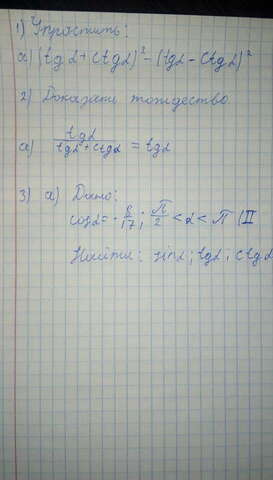 1) Упростить:
а) (tgα + ctgα)² - (tgα - ctgα)²
2) Доказать тождество
а) tgα / tgα + ctgα = tgα
3) а) Дано:
cosα = - 8/17 ; π/2 < α < π (II
Найти: sinα ; tgα ; ctgα